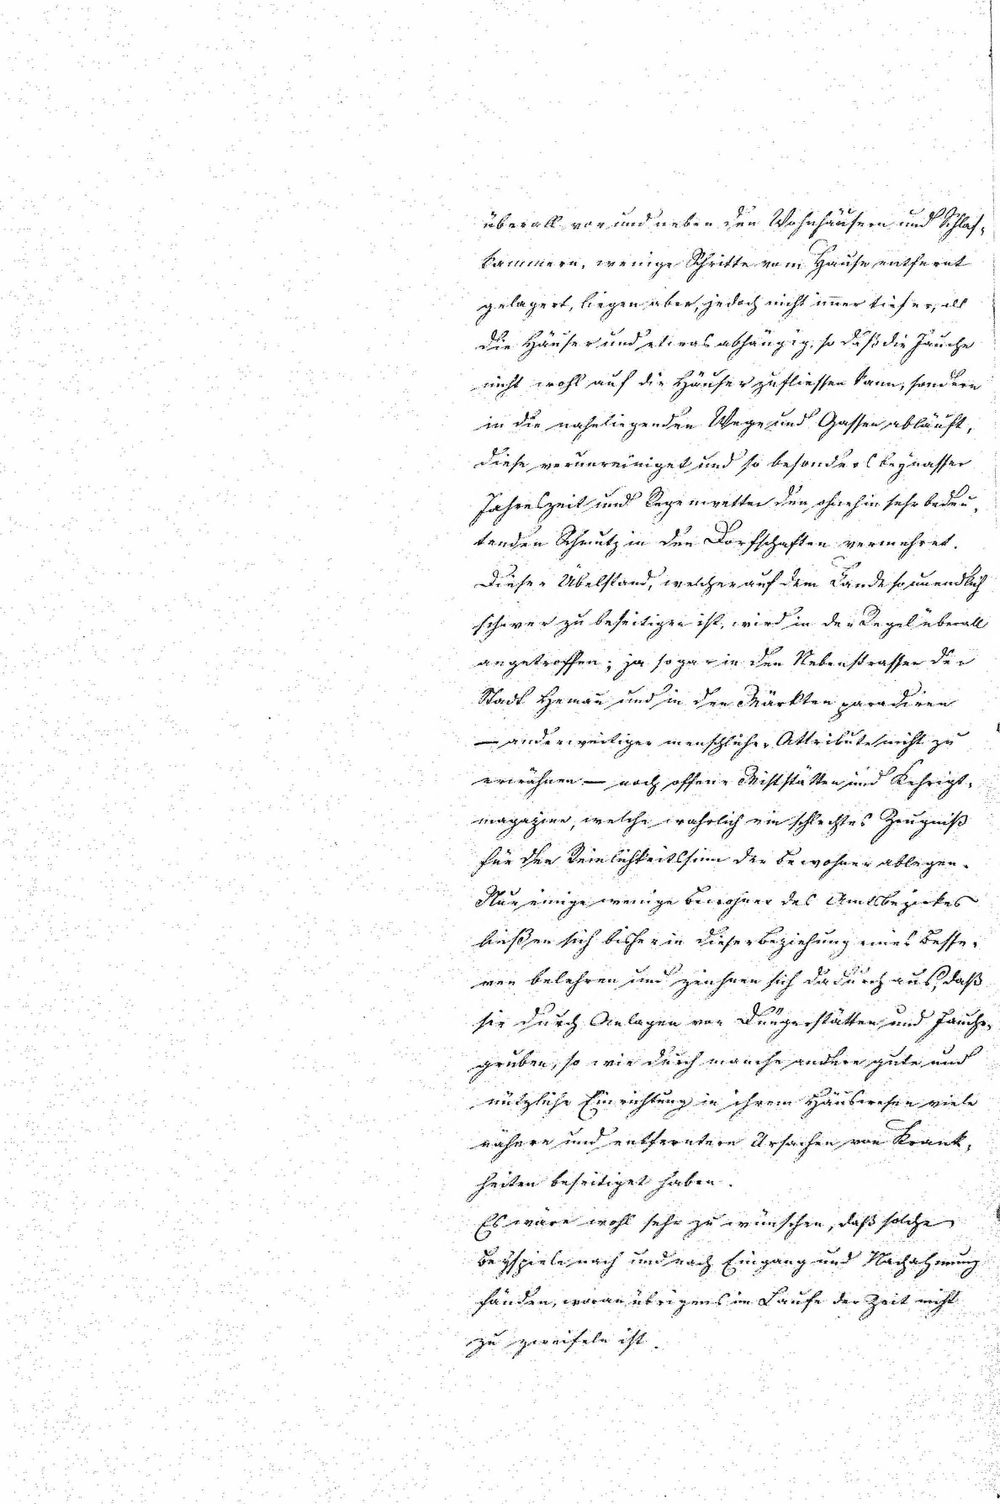 überall vor und neben den Wohnhäusern und Schlaf-
kammern, wenige Schritte vom Hause entfernt
gelagert, liegen aber, jedoch nicht immer tiefer, als
die Häuser und etwas abhängig, so daß die Jauche
nicht wohl auf die Häuser zufliessen kann, sondern
in die naheliegenden Wege und Gassen abläuft,
diese verunreiniget und so besonders bey nasser
Jahreszeit und Regenwetter den ohnehin sehr bedeu-
tenden Schmutz in den Dorfschaften vermehret.
Dieser Übelstand, welcher auf dem Lande so unendlich
schwer zu beseitigen ist, wird in der Regel überall
angetroffen; ja sogar in den Nebenstrassen der
Stadt Hemau und in den Märkten paradiren
— anderweitiger menschlicher Attribute nicht zu
erwähnen — noch offene Miststätten und Kehrigt-
magazine, welche wahrlich ein schlechtes Zeugniß
für den Reinlichkeitssinn der Bewohner ablegen.
Nur einige wenige Bewohner des Amtsbezirkes
ließen sich bisher in dieser Beziehung eines Besse-
ren belehren und zeichnen sich dadurch aus, daß
sie durch Anlagen von Düngerstätten und Jauche-
gruben, so wie durch manche andere gute und
nützliche Einrichtung in ihrem Hauswesen viele
nähere und entferntere Ursachen von Krank-
heiten beseitiget haben.
Es wäre wohl sehr zu wünschen, daß solche
Beyspiele nach und nach Eingang und Nachahmung
fänden, woran übrigens im Laufe der Zeit nicht
zu zweifeln ist.